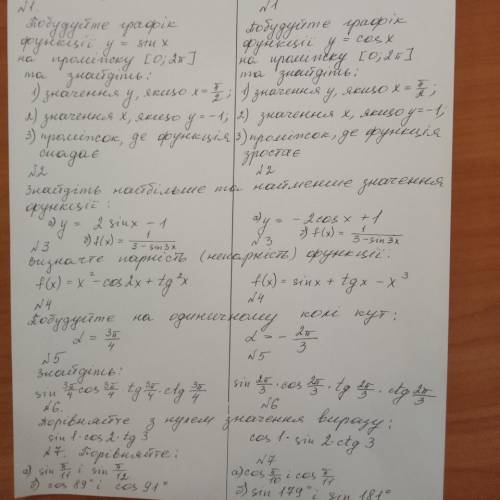 №1.
Побудуйте графік
функції y = sin x
на проміжку [0; 2π]
та знайдіть:
1) значення y, якщо x = π/2;
2) значення x, якщо y = -1;
3) проміжок, де функція
спадає
№1
Побудуйте графік
функції y = cos x
на проміжку [0; 2π]
та знайдіть:
1) значення y, якщо x = π/2;
2) значення x, якщо y = -1,
3) проміжок, де функція
зростає
№2 №2
Знайдіть найбільше та найменше значення
функції:
а) y = 2 sin x - 1
б) f(x) = 1/(3 - sin 3x)
а) y = - 2 cos x + 1
б) f(x) = 1/(3 - sin 3x)
№3 №3
Визначте парність (непарність) функції:
f(x) = x² - cos 2x + tg²x
f(x) = sin x + tg x - x³
№4 №4
Побудуйте на одиничному колі кут:
α = 3π/4
α = - 2π/3
№5 №5
Знайдіть:
sin 3π/4 · cos 3π/4 · tg 3π/4 · ctg 3π/4
sin 2π/3 · cos 2π/3 · tg 2π/3 · ctg 2π/3
№6. №6
Порівняйте з нулем значення виразу:
sin 1 · cos 2 · tg 3
cos 1 · sin 2 · ctg 3
№7. Порівняйте:
а) sin π/11 і sin π/12
б) cos 89° і cos 91°
№7
а) cos π/10 і cos π/11
б) sin 179° · sin 181°